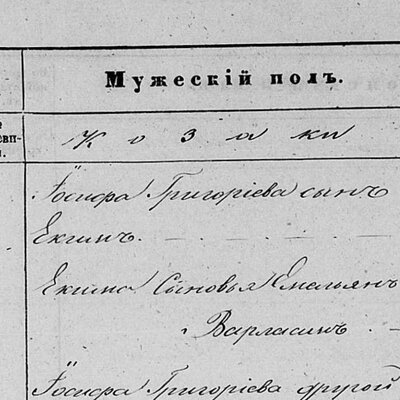 Мужескій полъ.
Козаки
Іосифа Григоріева сынъ
Екимъ.
Екима Сыновья Емельянъ
Варласимъ
Іосифа Григоріева другой